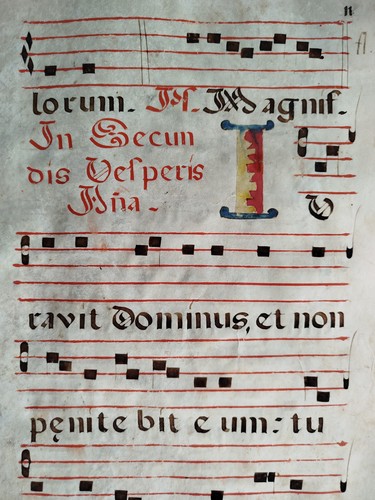 11
A.
lorum. Ps. Magnif.
In Secun
dis Vesperis
Aña.
I V
ravit Dominus, et non
pęnite bit e um: tu